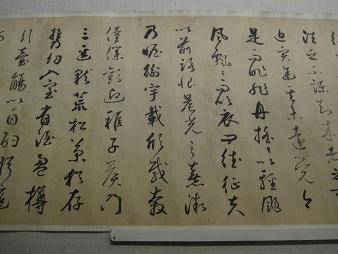 往之不諫知來者之可
追實迷途其未遠覺今
是而昨非舟搖搖以輕颺
風飄飄而吹衣問征夫
以前路恨晨光之熹微
乃瞻衡宇載欣載奔
僮僕歡迎稚子候門
三逕就荒松菊猶存
攜幼入室有酒盈樽
引壺觴以自酌眄庭